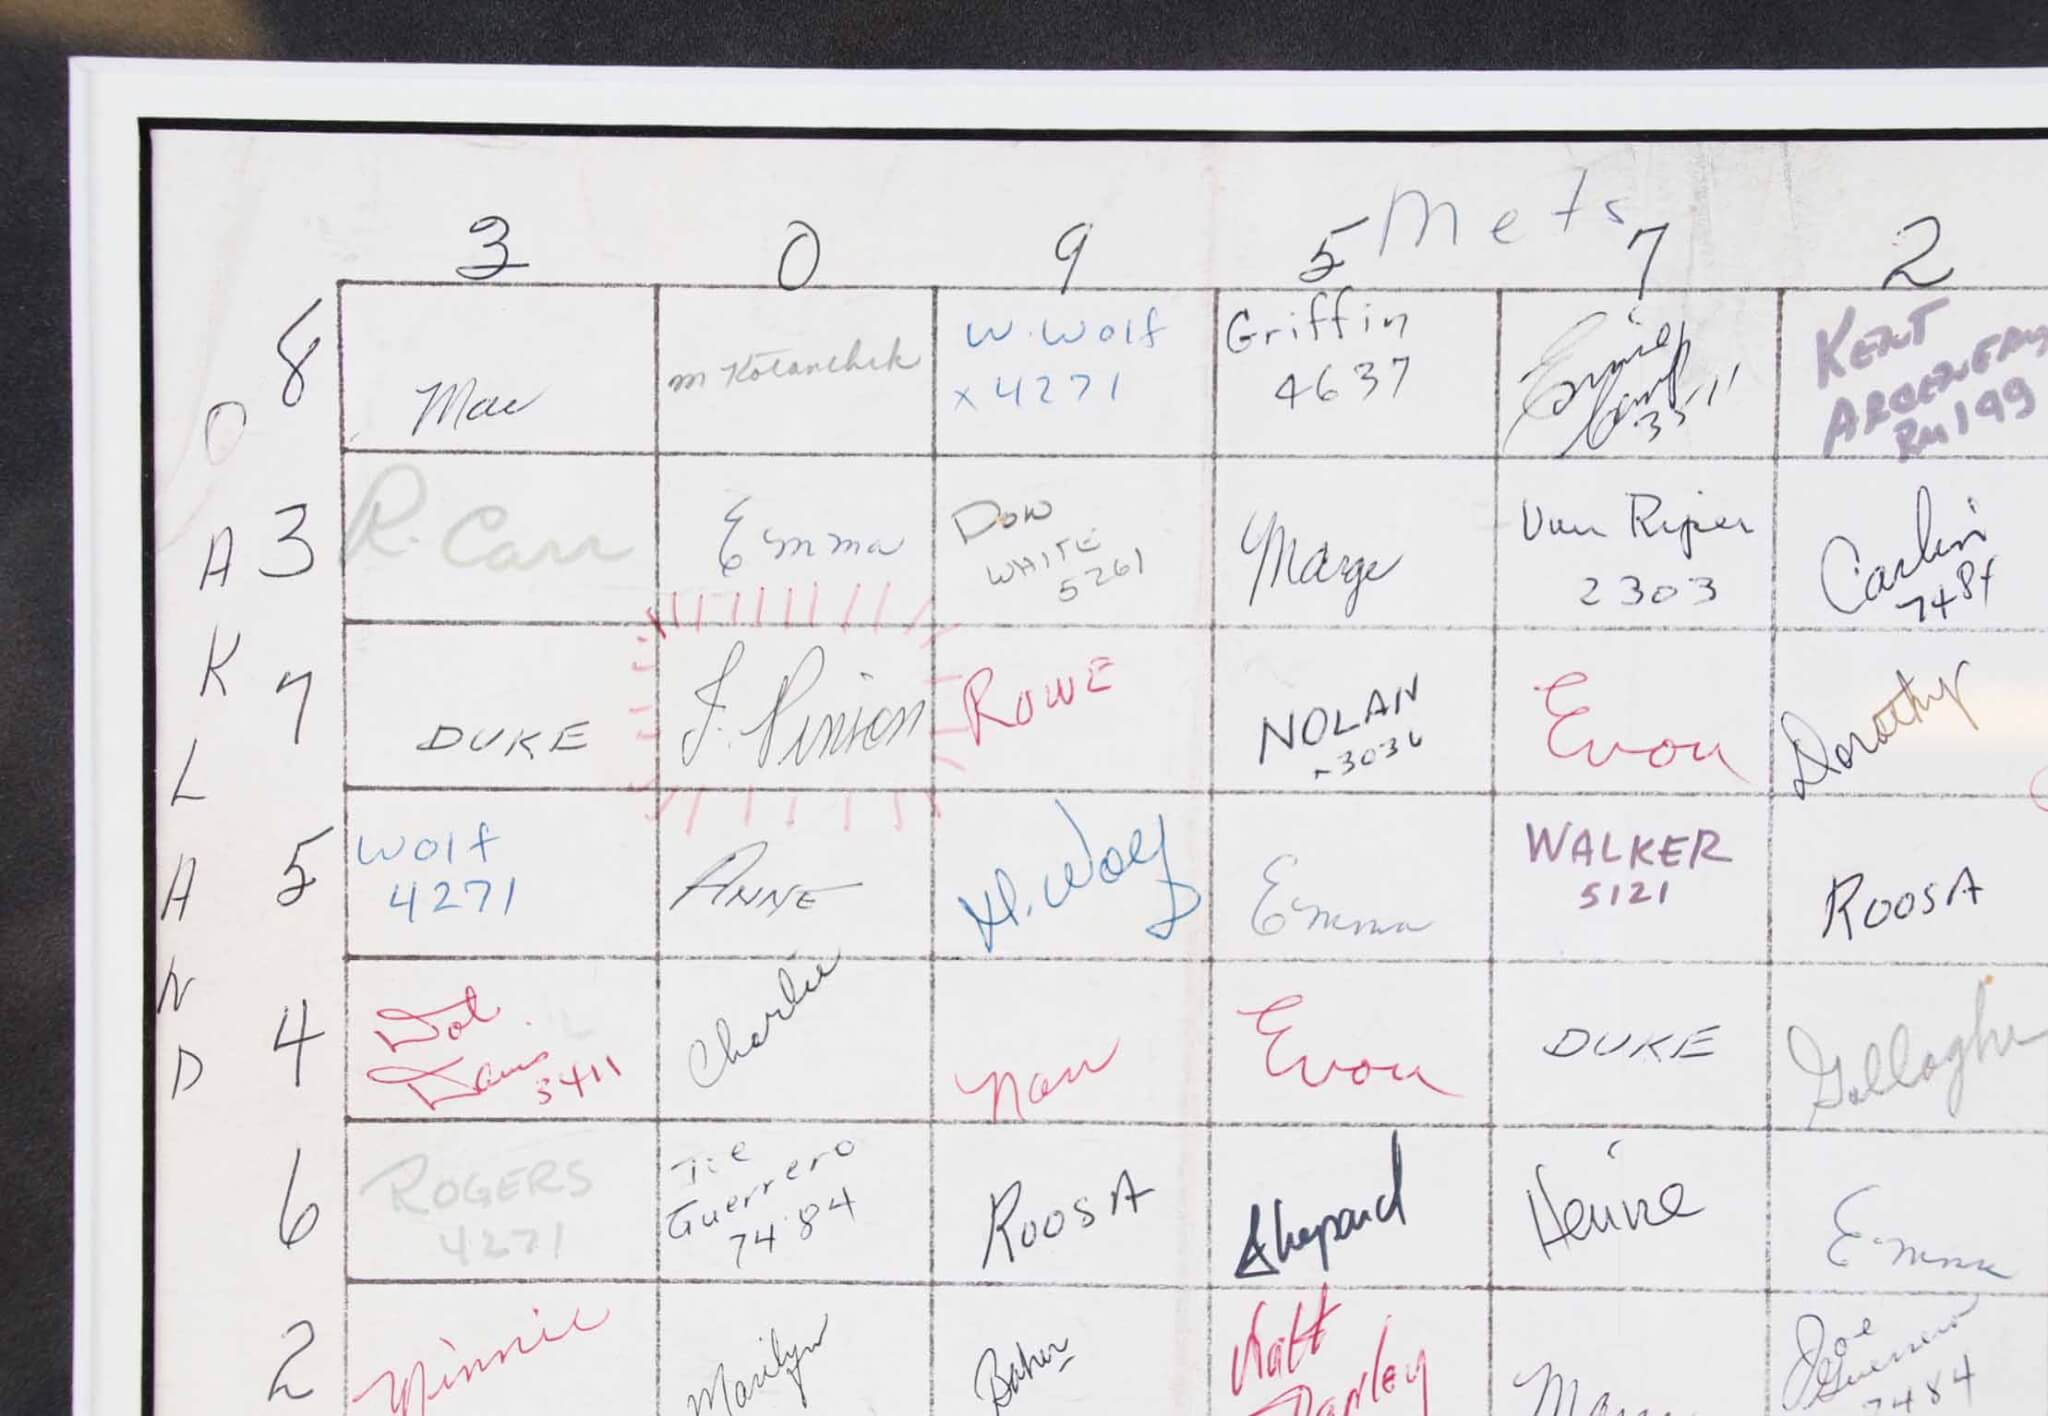 Mets
3 0 9 5 7 2
OAKLAND
8
Mae
m Kotanchik
W. Wolf
x 4271
Griffin
4637
Ernie
Camp
3511
KENT
Rm 199
3
R. Carr
Emma
DON
WHITE
5261
Marge
Van Riper
2303
Carlin
7484
7
DUKE
J. Pinion
ROWE
NOLAN
x3036
Evon
Dorothy
5
Wolf
4271
ANNE
H. Wolf
Emma
WALKER
5121
ROOSA
4
Dot
Davis
3411
Charlie
Nan
Evon
DUKE
Gallagher
6
ROGERS
4271
Guerrero
7484
ROOSA
Shepard
Emma
2
Minnie
Marilyn
Baker
Danley
Joe
Guerrero
7484